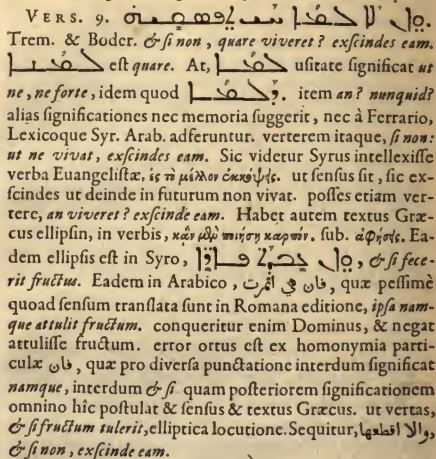 VERS. 9. ܘܐܢ ܠܐ ܠܡܐ ܬܚܐ ܬܦܣܩܝܗ
Trem. & Boder. & si non, quare viveret? exscindes eam.
ܠܡܢܐ est quare. At, ܠܡܐ usitate significat ut
ne, ne forte, idem quod ܕܠܡܐ. item an? nunquid?
alias significationes nec memoria suggerit, nec à Ferrario,
Lexicoque Syr. Arab. adferuntur. verterem itaque, si non:
ut ne vivat, exscindes eam. Sic videtur Syrus intellexisse
verba Euangelistæ, εἰς τὸ μέλλον ἐκκόψεις. ut sensus sit, sic ex-
scindes ut deinde in futurum non vivat. posses etiam ver-
tere, an viveret? exscinde eam. Habet autem textus Græ-
cus ellipsin, in verbis, κἂν μὲν ποιήσῃ καρπόν. sub. ἀφήσεις. Ea-
dem ellipsis est in Syro, ܘܐܢ ܥܒܕܬ ܦܐܪܐ, & si fece-
rit fructus. Eadem in Arabico, فان هي اثمرت, quæ pessimè
quoad sensum translata sunt in Romana editione, ipsa nam-
que attulit fructum. conqueritur enim Dominus, & negat
attulisse fructum. error ortus est ex homonymia parti-
culæ فان, quæ pro diversa punctatione interdum significat
namque, interdum & si quam posteriorem significationem
omnino hîc postulat & sensus & textus Græcus. ut vertas,
& si fructum tulerit, elliptica locutione. Sequitur, والا اقطعها,
& si non, exscinde eam.